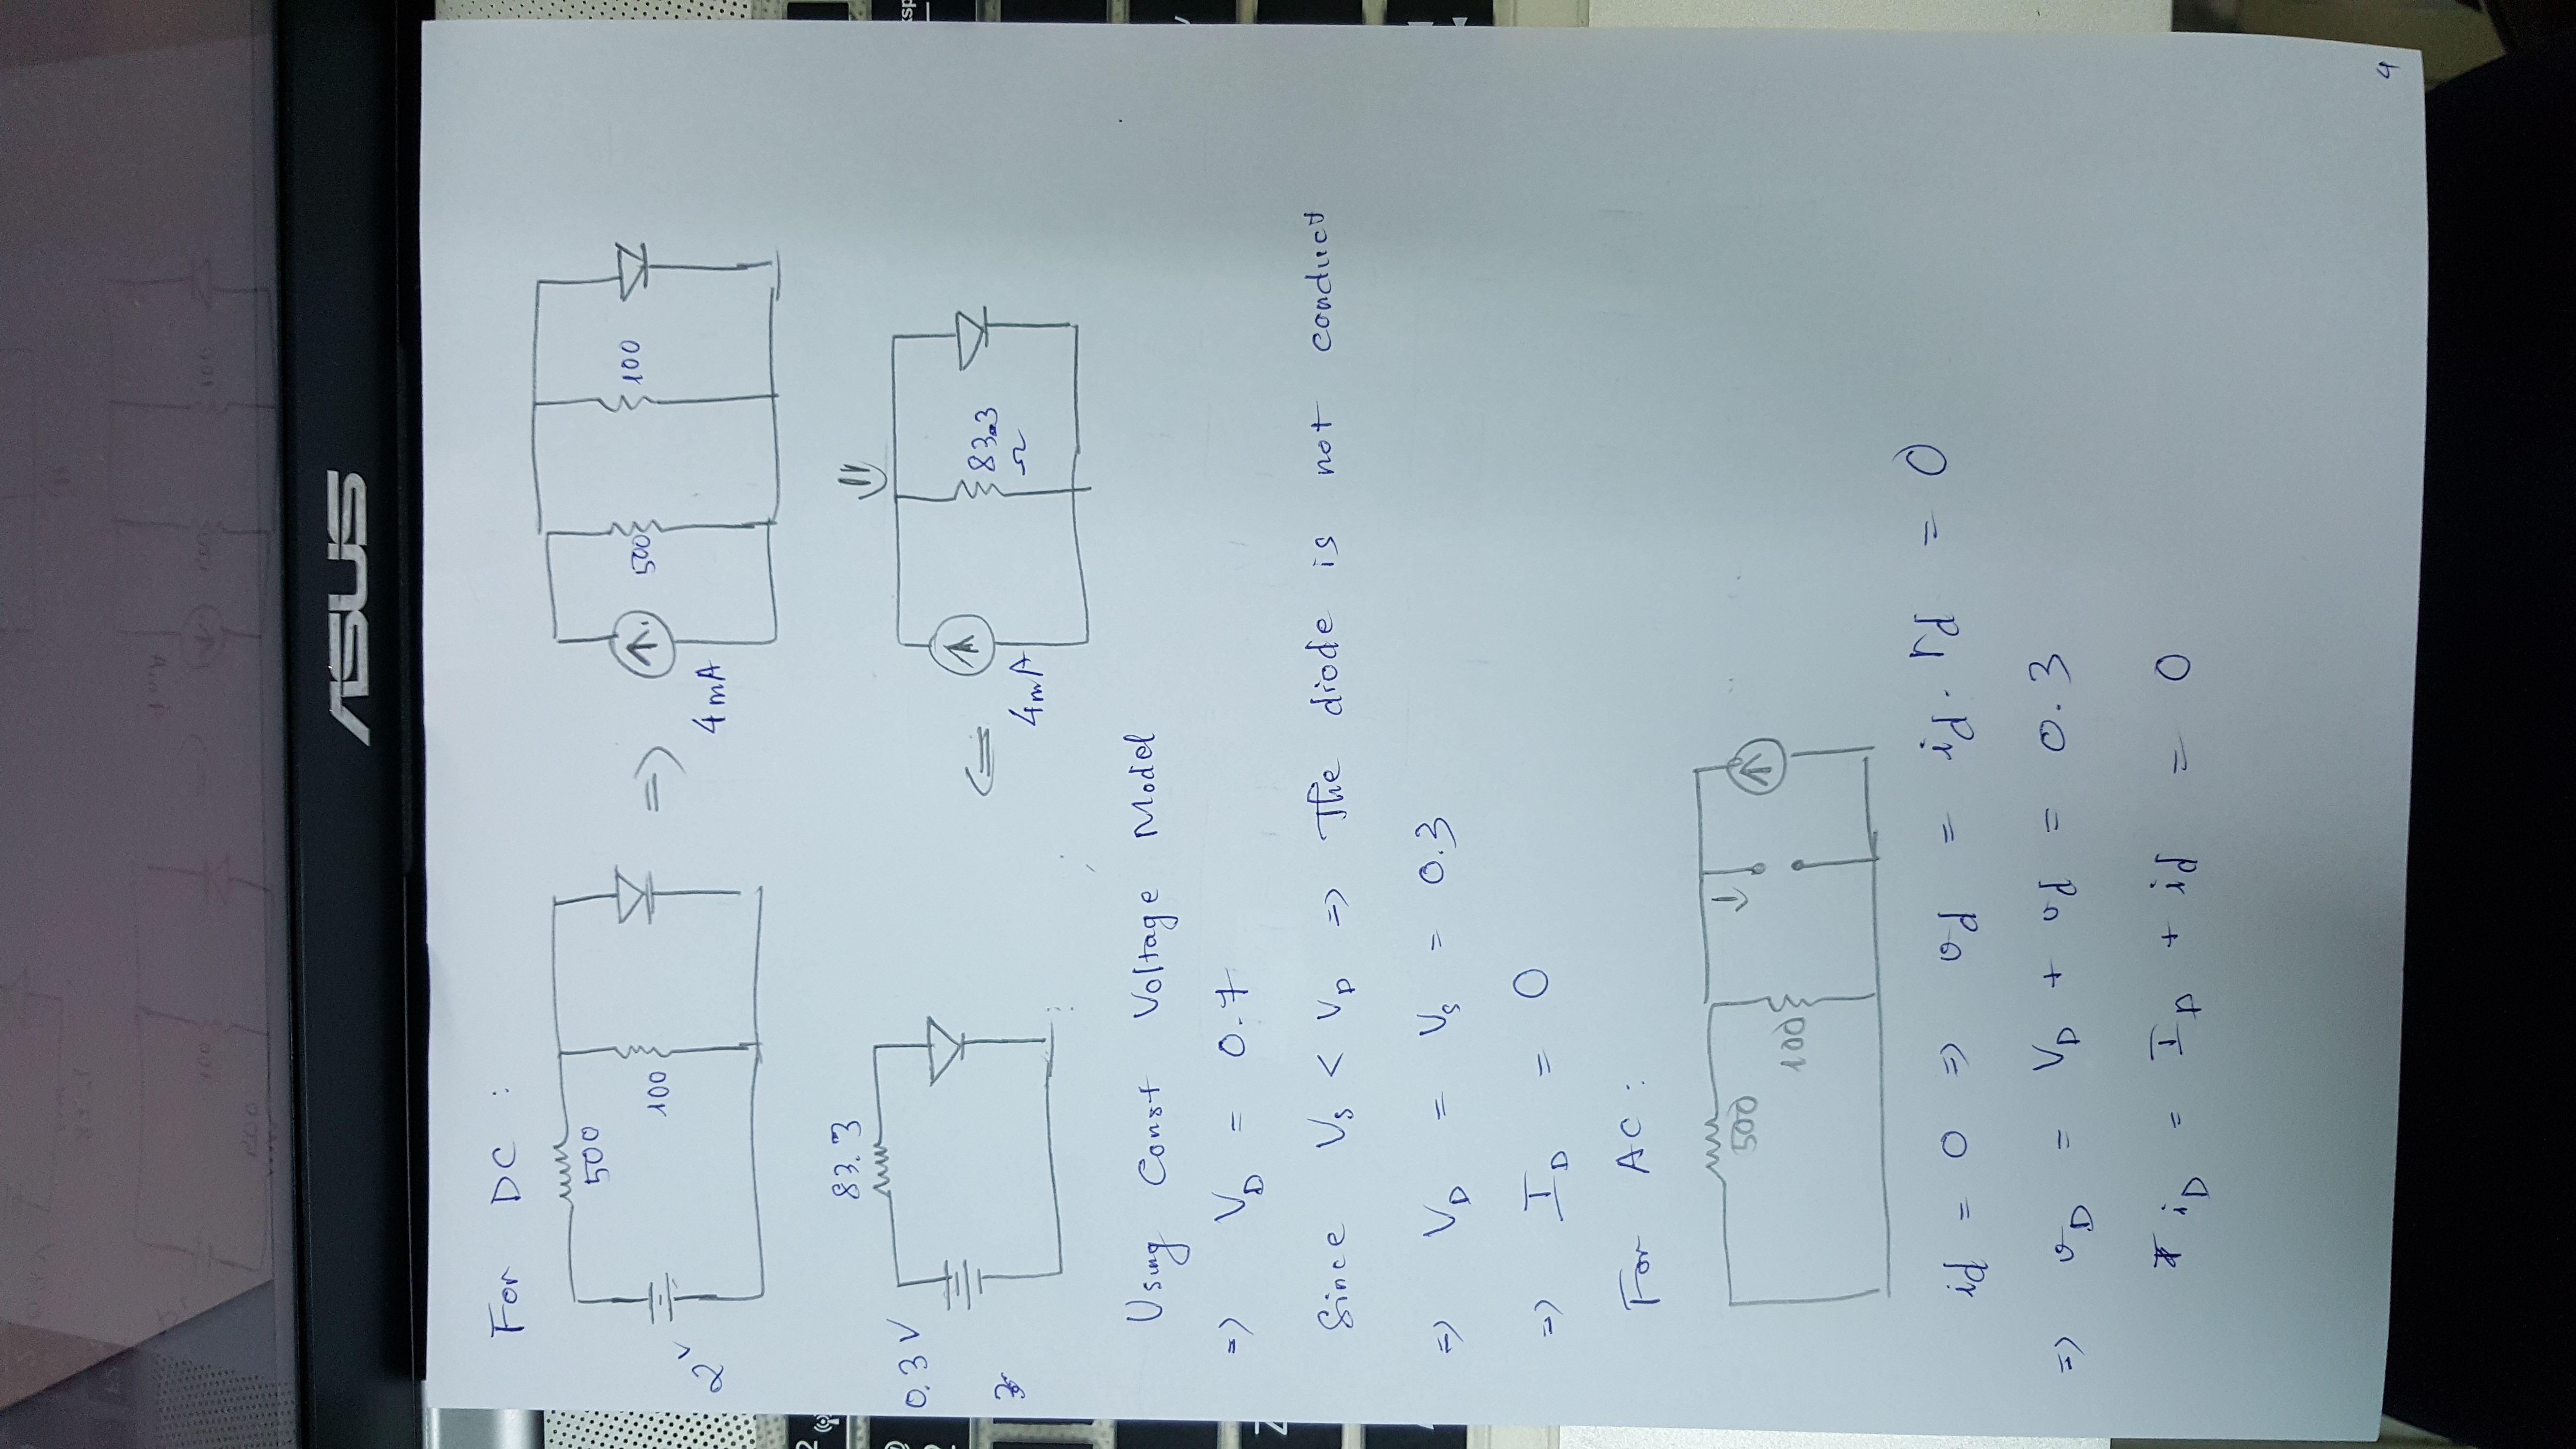 ASUS
For DC :
500
100
2V
=>
4mA
500
100
83.3
0.3 V
<=
4mA
83.3
Ω
Using Const Voltage Model
=> VD = 0.7
Since VS < VD => The diode is not conduct
=> VD = VS = 0.3
=> ID = 0
For AC :
500
100
id = 0 => vd = id . rd = 0
=> vD = VD + vd = 0.3
iD = ID + id = 0
4